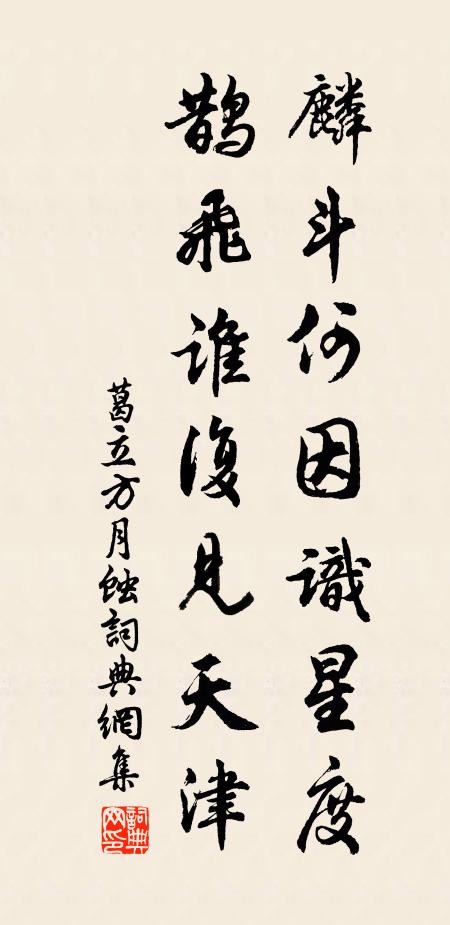 麟斗何因識星度
鵲飛誰復見天津
葛立方月蝕詞典網集
詞典網印